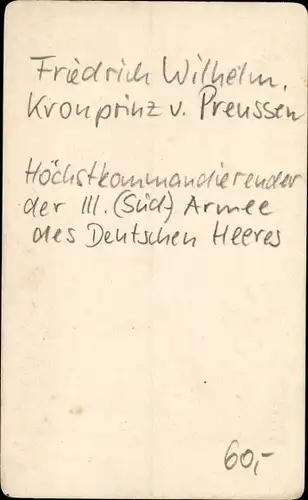 Friedrich Wilhelm,
Kronprinz v. Preussen
Höchstkommandierender
der III. (Süd-) Armee
des Deutschen Heeres
60,-